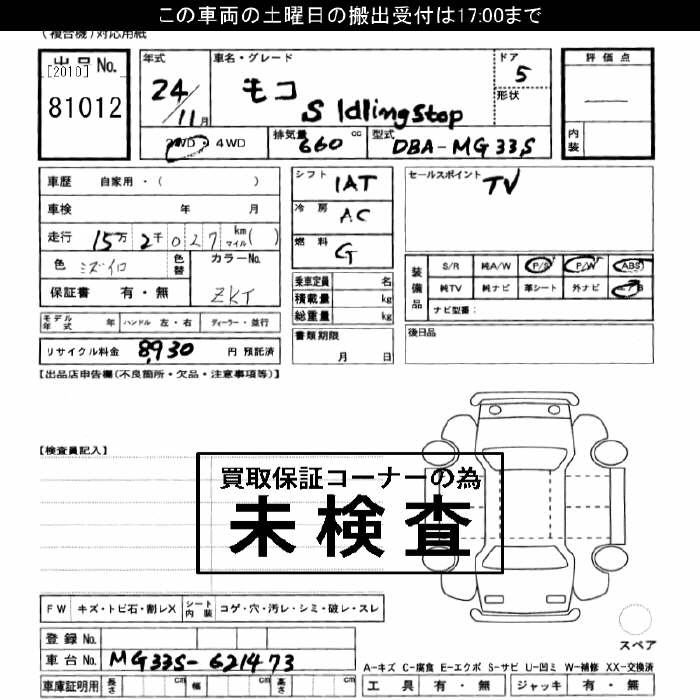 この車両の土曜日の搬出受付は17:00まで
(複合機)対応用紙
出品No.
[2010]
81012
年式
24/11月
車名・グレード
モコ
S IdlingStop
ドア
5
形状
2WD・4WD
排気量
660 cc
型式
DBA-MG33S
評価点
内装
車歴 自家用・( )
車検 年 月
走行 15万2千027 km マイル( )
色 ミズイロ
色替
カラーNo.
ZKT
保証書 有・無
シフト IAT
冷房 AC
燃料 G
乗車定員 名
積載量 kg
総重量 kg
書類期限
月 日
セールスポイント
TV
装備品
S/R 純A/W P/S P/W ABS
純TV 純ナビ 革シート 外ナビ エアB
ナビ型番:
後日品
モデル年式 年 ハンドル 左・右 ディーラー・並行
リサイクル料金 8,930 円 預託済
【出品店申告欄(不良箇所・欠品・注意事項等)】
【検査員記入】
買取保証コーナーの為
未検査
FW キズ・トビ石・割レX シート内装 コゲ・穴・汚レ・シミ・破レ・スレ
スペア
登録No.
車台No. MG33S-621473
A-キズ C-腐食 E-エクボ S-サビ U-凹ミ W-補修 XX-交換済
車庫証明用 長さ cm 幅 cm 高さ cm
工具 有・無 ジャッキ 有・無